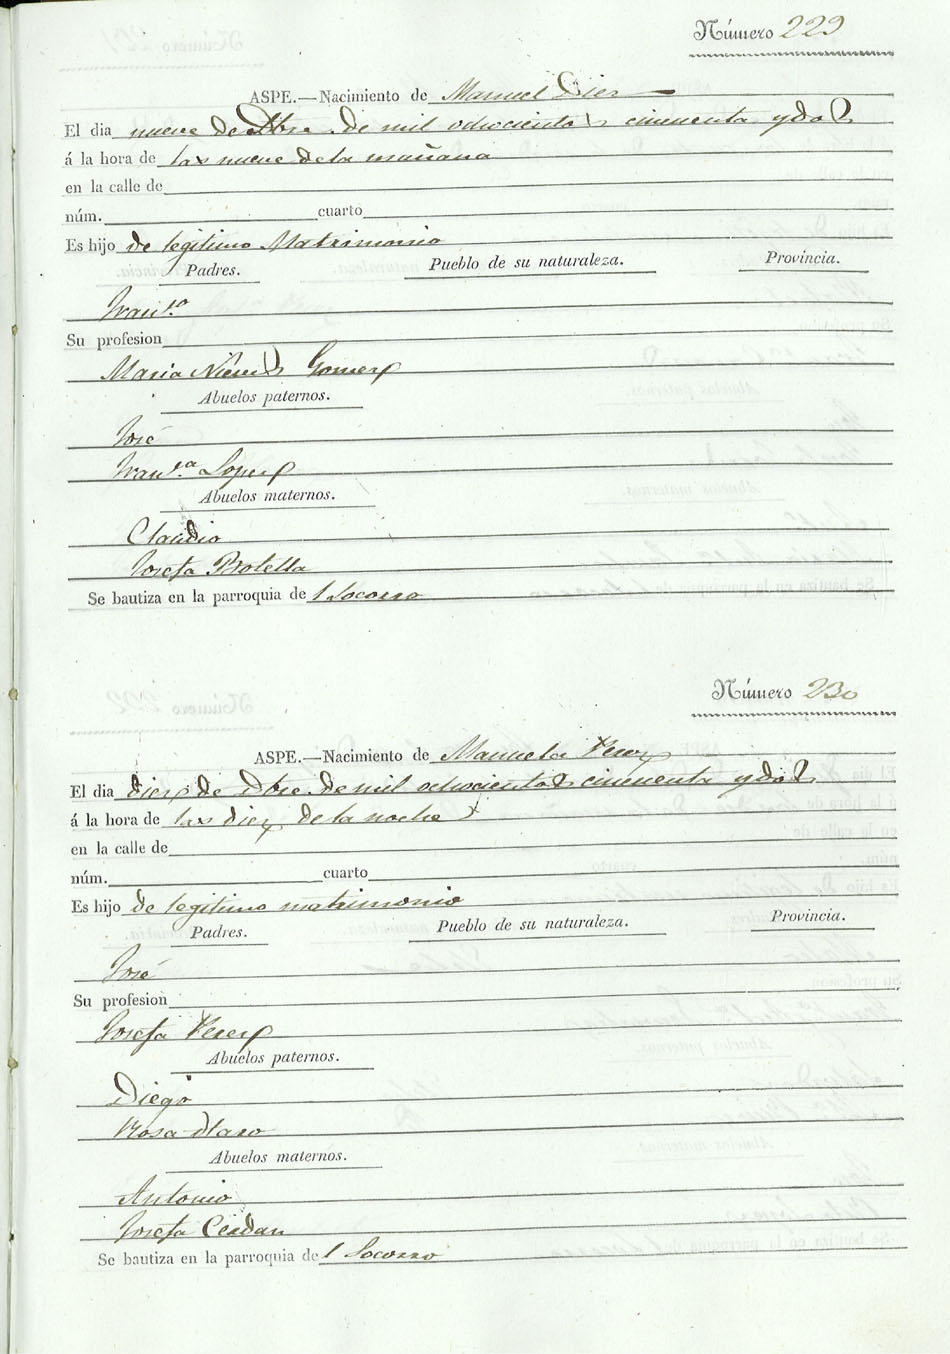 Número 229
ASPE.—Nacimiento de Manuel Dies
El dia nueve de Dbre. de mil ochocientos cincuenta y dos
á la hora de las nueve de la mañana
en la calle de
núm. cuarto
Es hijo de legitimo Matrimonio
Padres. Pueblo de su naturaleza. Provincia.
Franco
Su profesion
Maria Nieves Gomez
Abuelos paternos.
José
Franca Lopez
Abuelos maternos.
Claudio
Josefa Botella
Se bautiza en la parroquia del Socorro
Número 230
ASPE.—Nacimiento de Manuela Perez
El dia diez de Dbre. de mil ochocientos cincuenta y dos
á la hora de las diez de la noche
en la calle de
núm. cuarto
Es hijo de legitimo matrimonio
Padres. Pueblo de su naturaleza. Provincia.
José
Su profesion
Josefa Perez
Abuelos paternos.
Diego
Rosa
Abuelos maternos.
Antonio
Josefa Cerdan
Se bautiza en la parroquia del Socorro